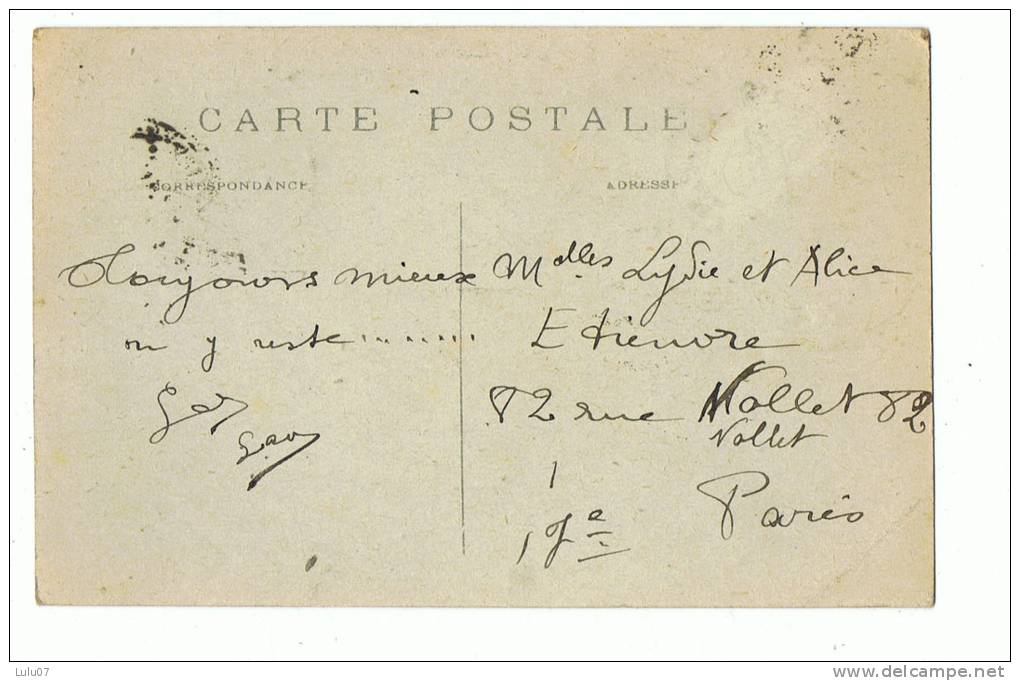 CARTE POSTALE
CORRESPONDANCE
ADRESSE
Toujours mieux
y reste ........
Mdlles Lydie et Alice
Etienvre
82 rue Nollet 82
Nollet
Paris
17e
Lulu07
www.delcampe.net